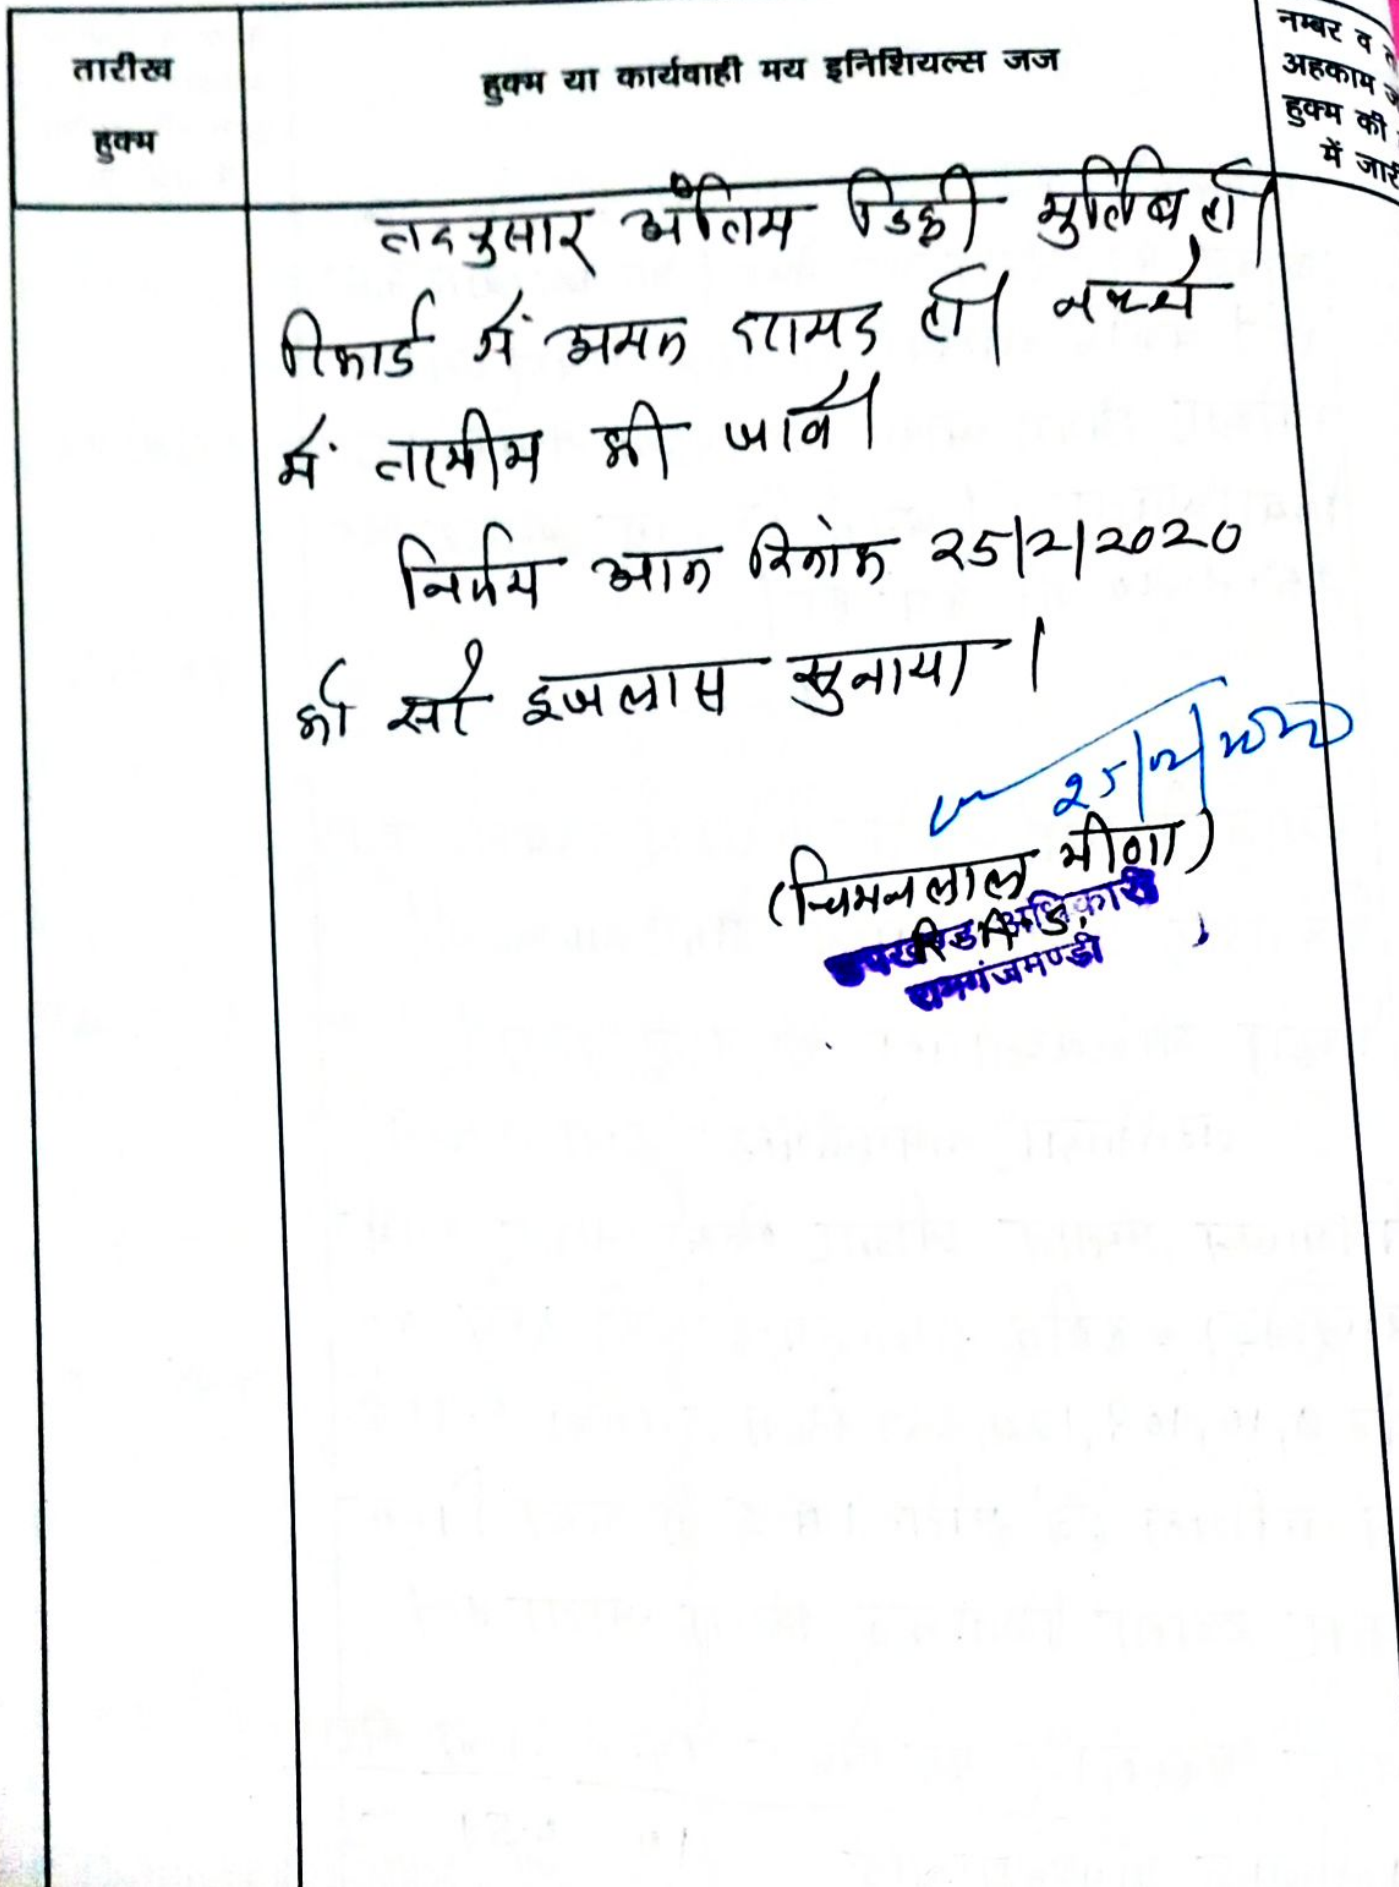 तारीख
हुक्म
हुक्म या कार्यवाही मय इनिशियल्स जज
नम्बर व
अहकाम
हुक्म की
में जारी
तदनुसार अंतिम डिक्री मुर्तिब हो।
रिकार्ड में अमल दरामद हो। नक्शे
में तरमीम की जावे।
निर्णय आज दिनांक 25/2/2020
को सरे इजलास सुनाया।
25/02/2020
(चिमनलाल मीणा)
उपखण्ड अधिकारी
रामगंजमण्डी